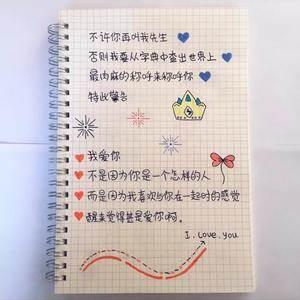 不许你再叫我先生
否则我要从字典中查出世界上
最肉麻的称呼来称呼你
特此警告
我爱你
不是因为你是一个怎样的人
而是因为我喜欢与你在一起时的感觉
醒来觉得甚是爱你啊。
I. Love. you